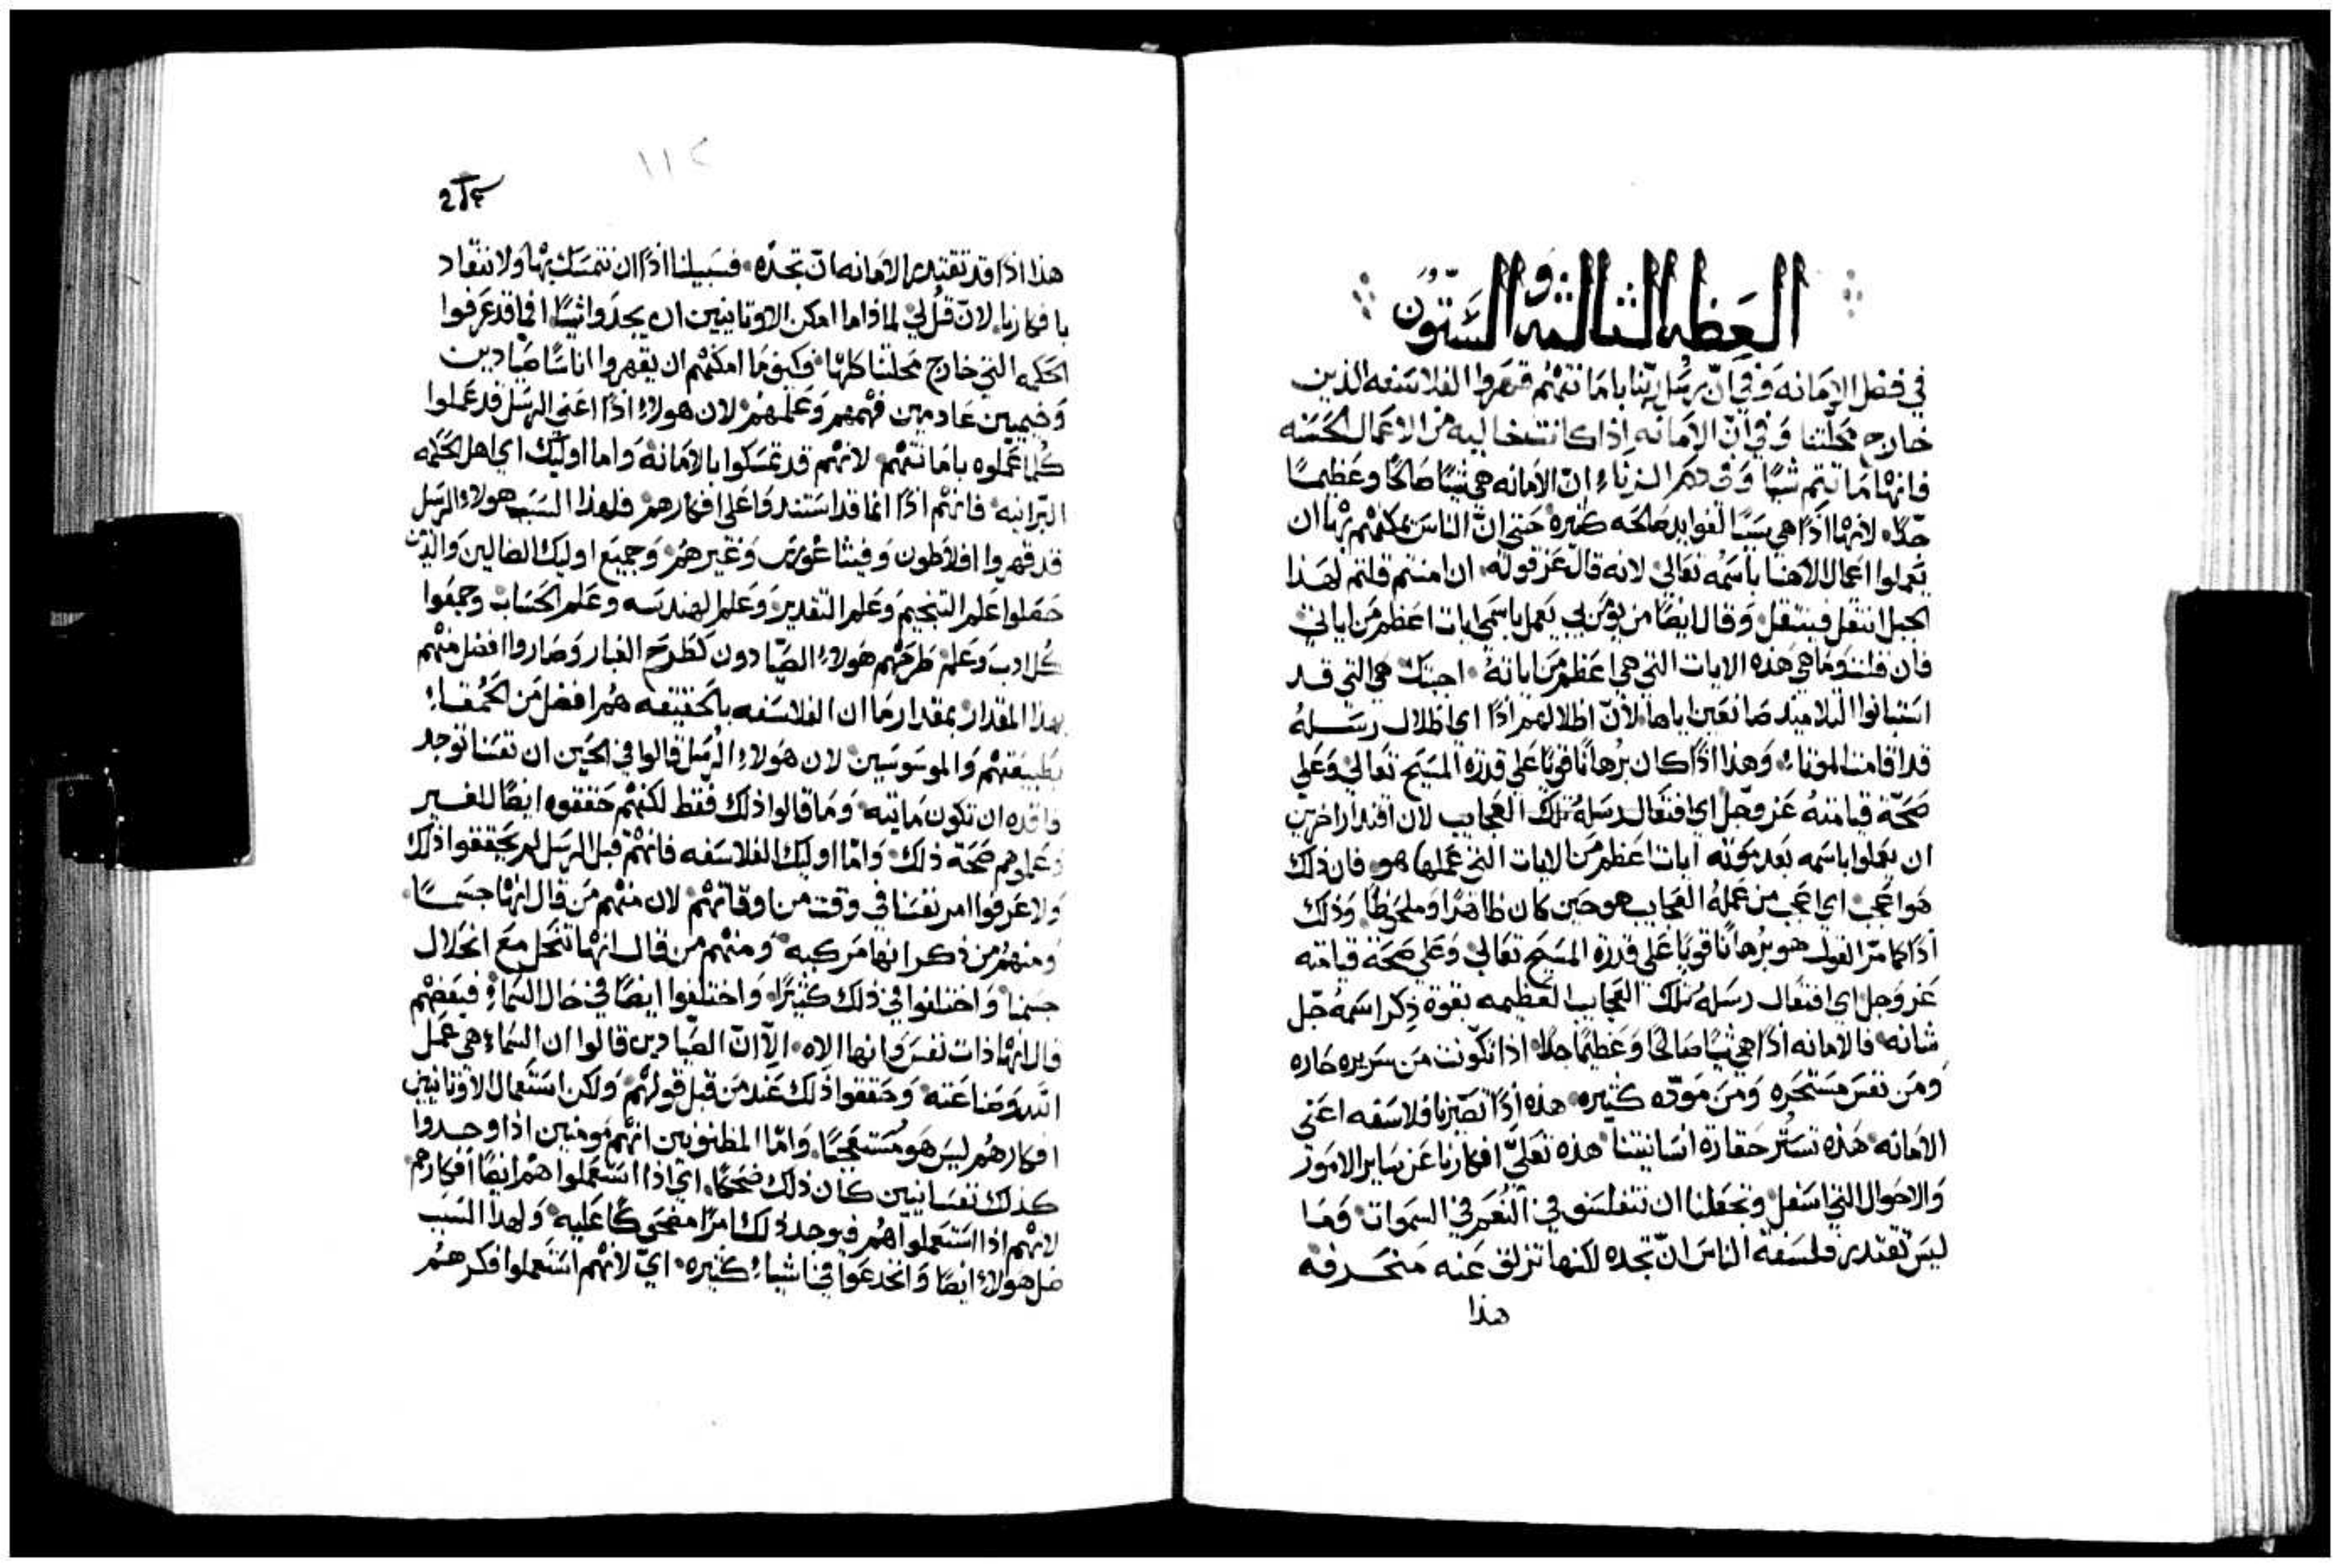 العظه الثالثه والستون
في فضل الامانه وفي انّ رسل ربّنا بامانتهم قهروا الفلاسفه الذين
خارج محلّتنا وفي انّ الامانه اذا كانت خاليه من الاعمال الحسنه
فانها ما تتم شيًا وفي ذم الزناء انّ الامانه هي شيًا صالحًا وعظيمًا
جدّا لانها اذًا هي سببًا لفوايد صالحه كثيره حتى انّ الناس يمكنهم بها ان
يعملوا اعمال الاهنا باسمه تعالي لانه قال عز قوله ان امنتم قلتم لهذا
الجبل انتقل فينتقل وقال ايضًا من يومن بي يعمل باسمي ايات اعظم من اياتي
فان قلت وما هي هذه الايات التي هي اعظم من اياته اجبتك هي التي قد
استبانوا التلاميذ صانعين اياها لأنّ اظلالهم اذًا اي اظلال رسله
قد اقامت الموتاء وهذا اذًا كان برهانًا قويًا علي قدرة المسيح تعالي وعلي
صحّة قيامته عز وجل اي افتعال رسله تلك العجايب لان اقتدار اخرين
ان يعملوا باسمه بعد موته ايات اعظم من الايات التي عملها هو فان ذلك
هو اعجب اي اعجب من عمله العجايب هو حين كان ظاهرًا وملحوظًا وذلك
اذًا كما مرّ القول هو برهانًا قويًا علي قدرة المسيح تعالي وعلي صحة قيامته
عز وجل اي افتعال رسله تلك العجايب العظيمه بقوة ذكر اسمه جلّ
شانه فالامانه اذًا هي شيًا صالحًا وعظيمًا جدًا اذا تكونت من سريره حاره
ومن نفس مستحره ومن مودّه كثيره هذه اذًا تصيّرنا فلاسفه اعني
الامانه هذه تستر حقارة انسانيتنا هذه تعليّ افكارنا عن ساير الامور
والاحوال التي اسفل وتجعلنا ان نتفلسف في النعم في السموات وما
ليس تقتدر فلسفة الناس انّ تجده لكنها تزلق عنه منحرفه
هذا
هذا اذًا قد تقتدر الامانه انّ تجدّه فسبيلنا اذًا ان نتمسك بها ولا ننقاد
بافكارنا لانّ قل لي لماذا ما امكن الاوتانيين ان يجدوا شيًا افما قد عرفوا
الحكمه التي خارج محلتنا كلها فكيف ما امكنهم ان يقهروا اناسًا صيادين
وخيميين عادمين فهمهم وعلمهم لان هولاء اذًا اعني الرسل قد عملوا
كلما عملوه بامانتهم لانهم قد تمسكوا بالامانه واما اوليك اي اهل الحكمه
البرانيه فانهم اذًا انما قد استندوا علي افكارهم فلهذا السبب هولاء الرسل
قد قهروا افلاطون وفيثاغورس وغيرهم وجميع اوليك الضالين والذين
حصلوا علم التنجيم وعلم التقدير وعلم الهندسه وعلم الحساب وجمعوا
كل ادب وعلم طرحهم هولاء الصيّادون كطرح الغبار وصاروا افضل منهم
بهذا المقدار بمقدار ما ان الفلاسفه بالحقيقه هم افضل من الحمقاء
بطبيعتهم والموسوسين لان هولاء الرسل قالوا في الحين ان نفسنا توجد
فاقده ان تكون مايته وما قالوا ذلك فقط لكنهم حققوه ايضًا للغير
وعلموهم صحة ذلك وامّا اوليك الفلاسفه فانهم قبل الرسل لم يحققوا ذلك
ولا عرفوا امر نفسنا في وقت من اوقاتهم لان منهم من قال انها جسمًا
ومنهم من ذكر انها مركبه ومنهم من قال انها تنحل مع انحلال
جسمنا واختلفوا في ذلك كثيرًا واختلفوا ايضًا في حال السماء فبعضهم
قال انها ذات نفس وانها الاه الّا انّ الصيّادين قالوا ان السماء هي عمل
الله وصناعته وحققوا ذلك عند من قبل قولهم ولكن استعمال الاوتانيين
افكارهم ليس هو مستعجبًا وامّا المظنونين انهم مومنين اذا وجدوا
كذلك نفسانيين كان ذلك ضحكًا اي اذا استعملوا هم ايضًا افكارهم
لانهم اذا استعملواهم فيوجد ذلك امرًا مضحكًا عليه ولهذا السبب
ضل هولاء ايضًا وانخدعوا في اشياء كثيره ايّ لانهم استعملوا فكرهم